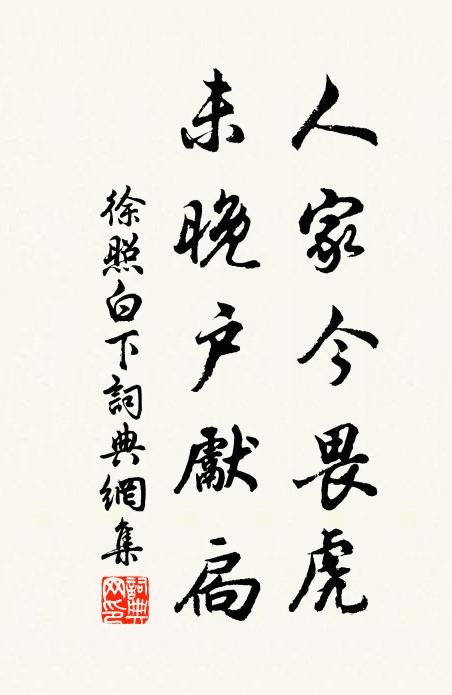 人家今畏虎
未晚户獻扃
徐照白下詞典網集
詞典网印